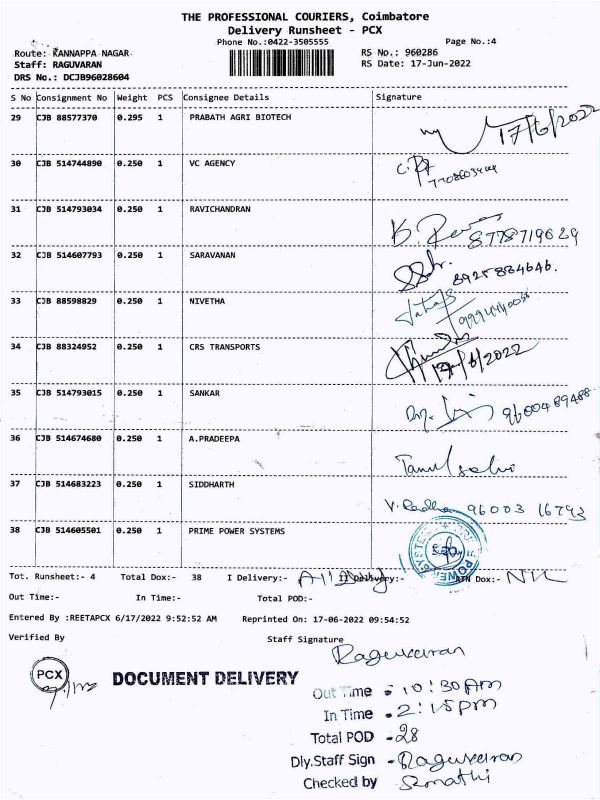 THE PROFESSIONAL COURIERS, Coimbatore
Delivery Runsheet - PCX
Phone No.:0422-3505555 Page No.:4
Route: KANNAPPA NAGAR RS No.: 960286
Staff: RAGUVARAN RS Date: 17-Jun-2022
DRS No.: DCJB96028604
S No Consignment No Weight PCS Consignee Details Signature
29 CJB 88577370 0.295 1 PRABATH AGRI BIOTECH 17/6/2022
30 CJB 514744890 0.250 1 VC AGENCY
31 CJB 514793034 0.250 1 RAVICHANDRAN 8778719629
32 CJB 514607793 0.250 1 SARAVANAN 8925884646.
33 CJB 88598829 0.250 1 NIVETHA
34 CJB 88324952 0.250 1 CRS TRANSPORTS 17/6/2022
35 CJB 514793015 0.250 1 SANKAR 9600489488
36 CJB 514674680 0.250 1 A.PRADEEPA
37 CJB 514683223 0.250 1 SIDDHARTH V. Radha 96003 16793
38 CJB 514605501 0.250 1 PRIME POWER SYSTEMS
Tot. Runsheet:- 4 Total Dox:- 38 I Delivery:- II Delivery:- RTN Dox:- NIL
Out Time:- In Time:- Total POD:-
Entered By :REETAPCX 6/17/2022 9:52:52 AM Reprinted On: 17-06-2022 09:54:52
Verified By Staff Signature
Raguvaran
PCX DOCUMENT DELIVERY
Out Time : 10:30 Am
In Time - 2:15 pm
Total POD - 28
Dly.Staff Sign - Raguvaran
Checked by